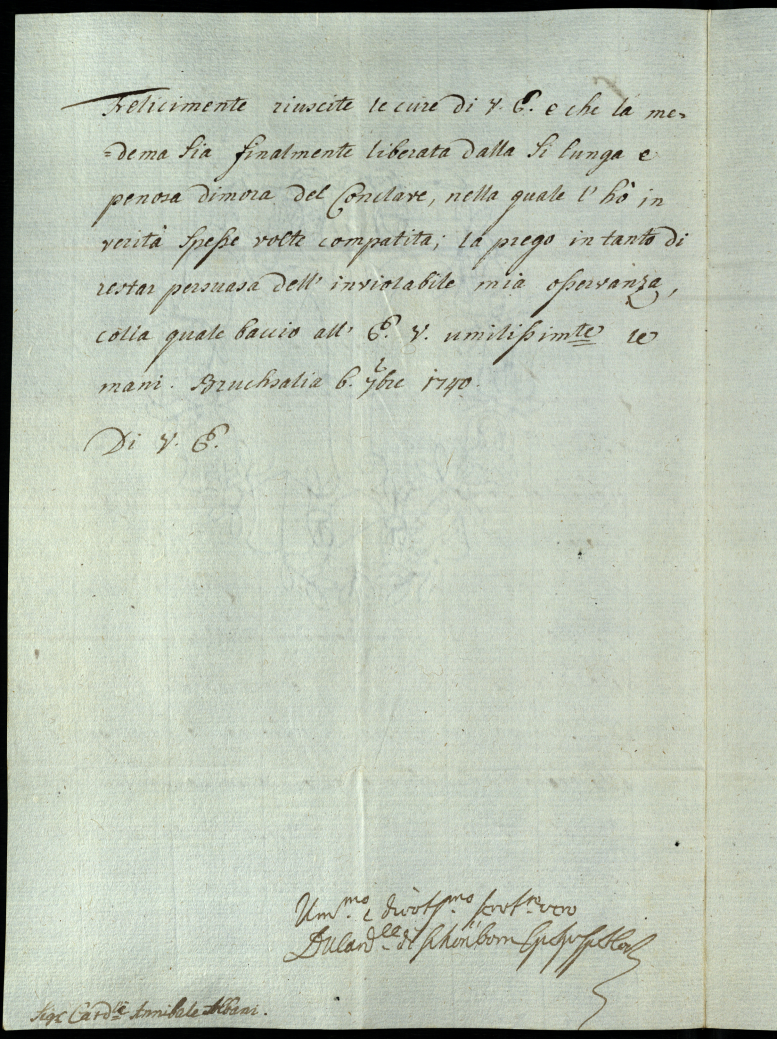 Felicimente riuscite le cure di V. E. e che la me-
=dema sia finalmente liberata dalla si lunga e
penosa dimora del Conclave, nella quale l' hò in
verità speße volte compatita; la prego in tanto di
restar persuasa dell' inviolabile mia oßervanza,
colla quale baccio all' E. V. umilißimte le
mani. Bruchsalia 6. 7bre 1740.
Di V. E.
Um.mo e divot.mo vero
Card.le di Schönborn
Sigr Card.le Annibale Albani.